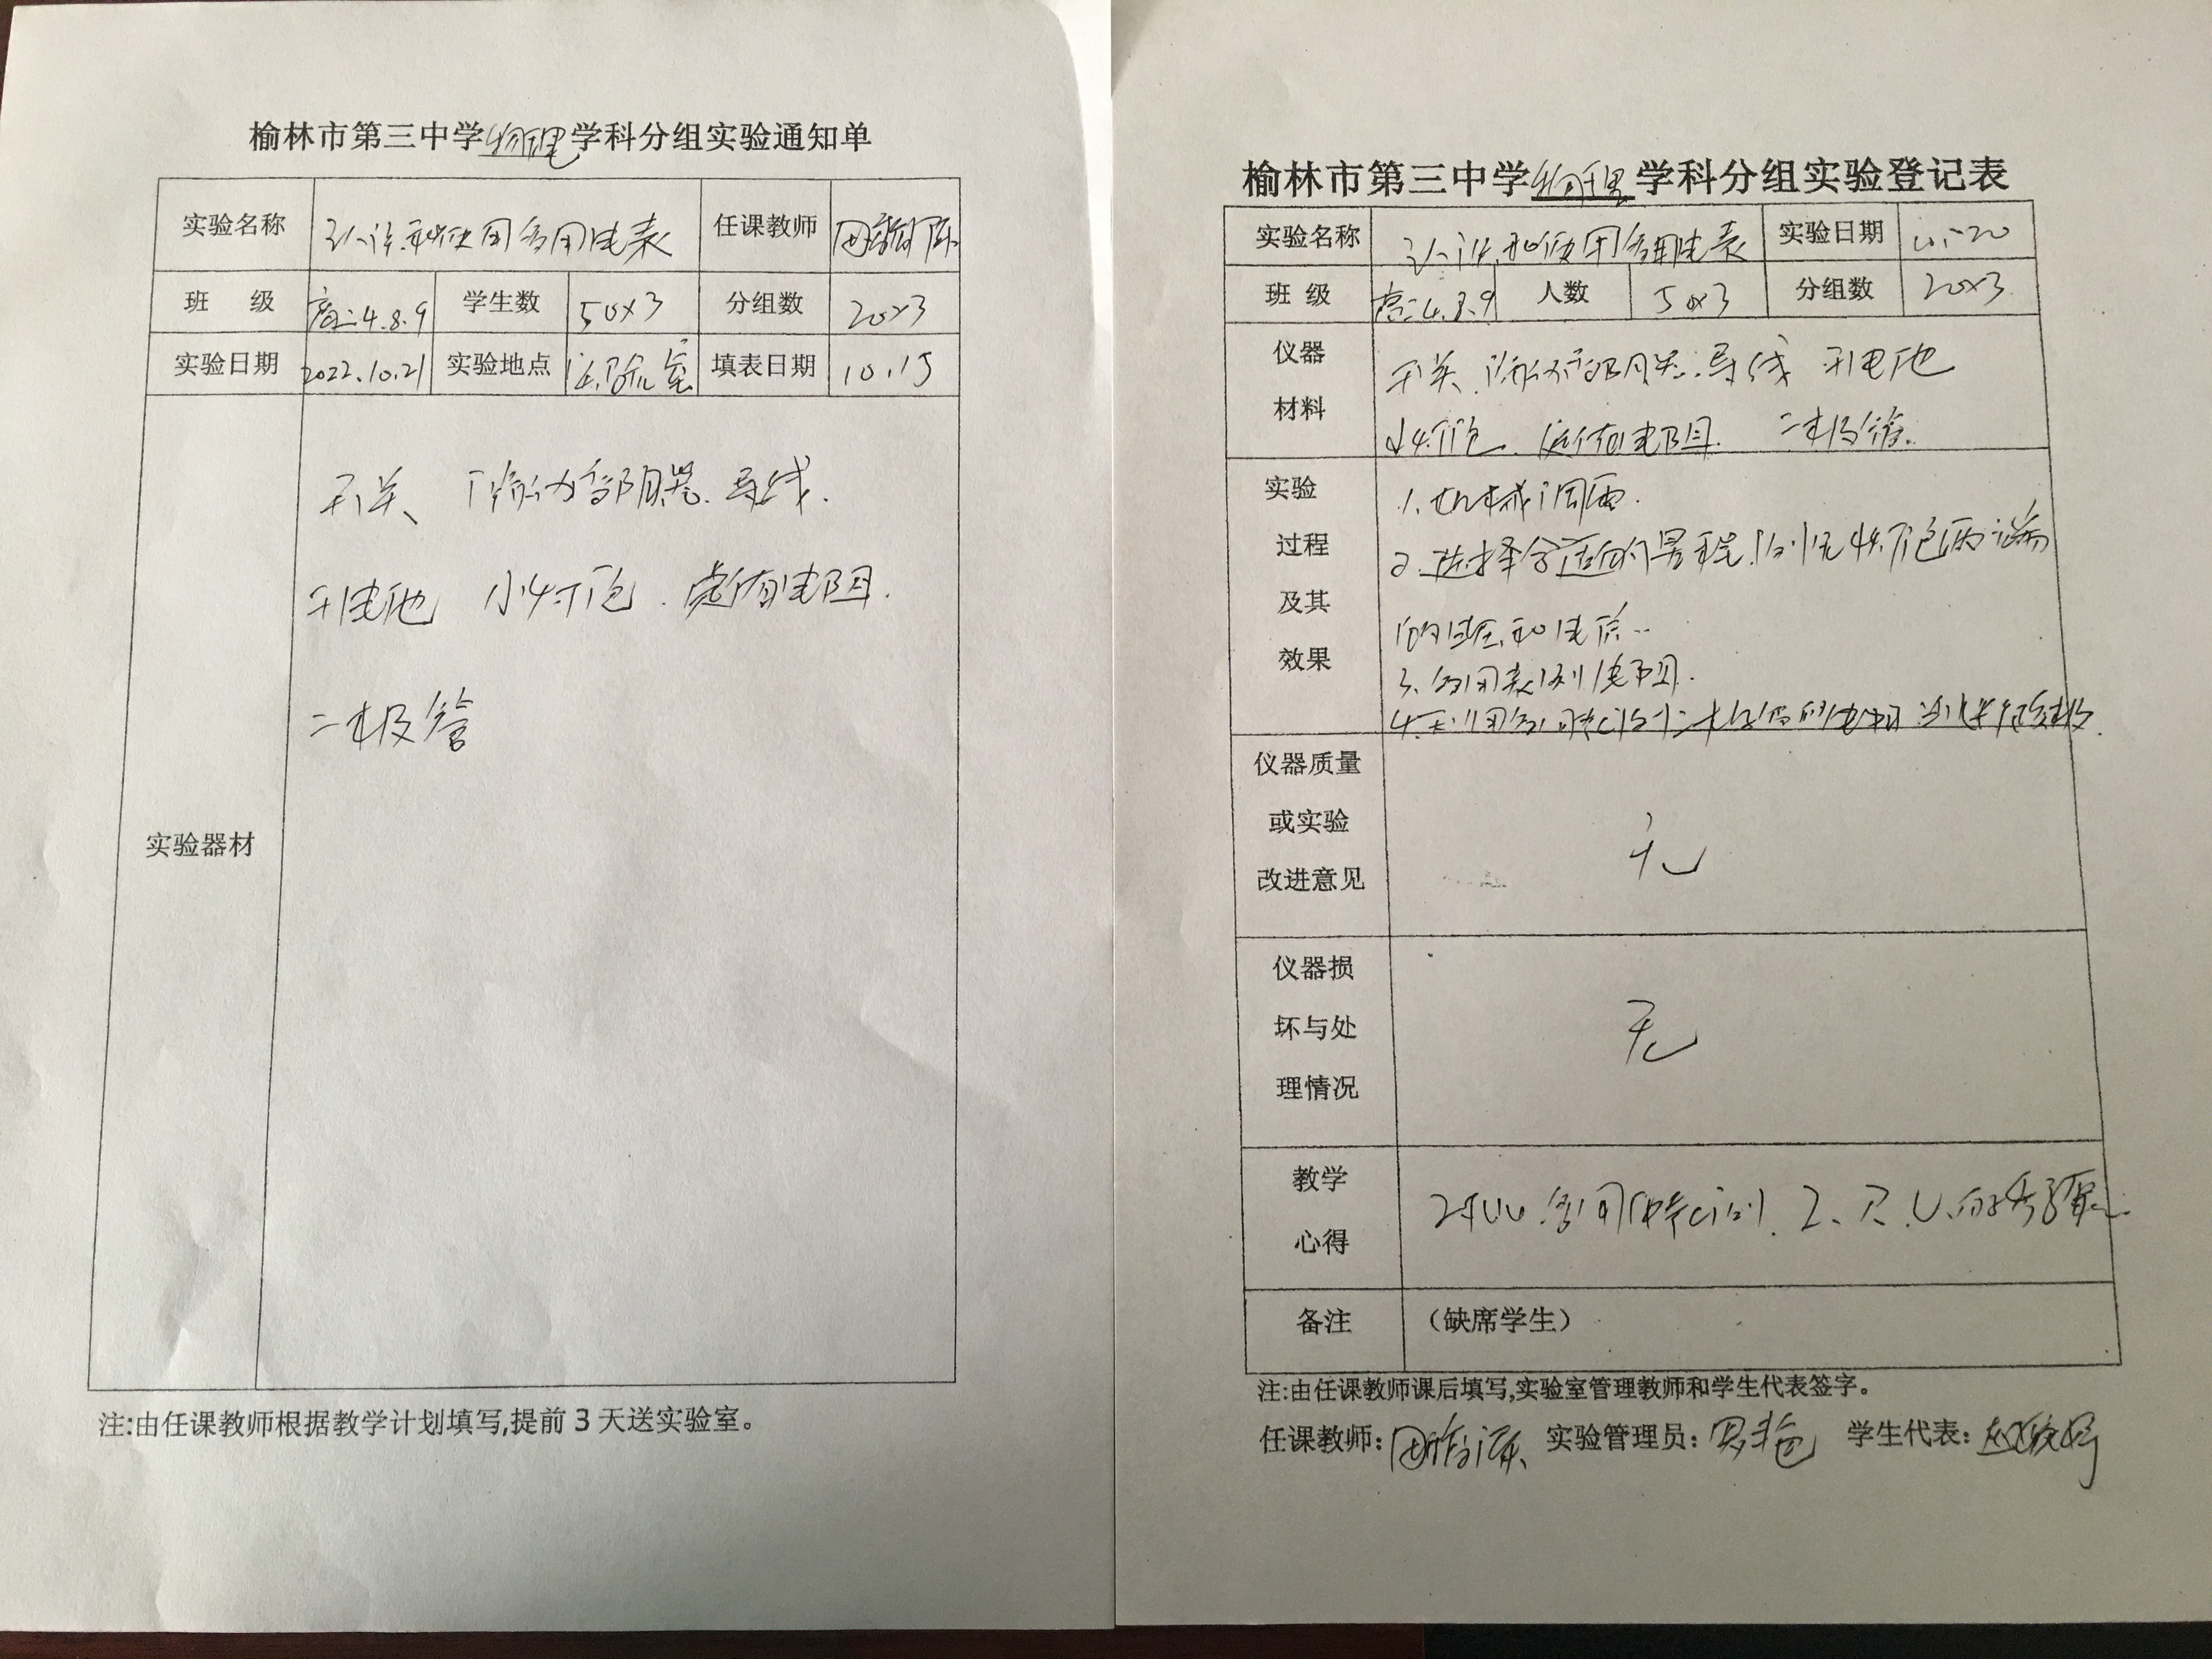 榆林市第三中学物理学科分组实验通知单
实验名称 认识和使用多用电表 任课教师
班 级 高二4.8.9 学生数 50×3 分组数 20×3
实验日期 2022.10.21 实验地点 实验室 填表日期 10.15
实验器材
开关、滑动变阻器.导线.
干电池 小灯泡.定值电阻.
二极管
注:由任课教师根据教学计划填写,提前3天送实验室。
榆林市第三中学物理学科分组实验登记表
实验名称 认识和使用多用电表 实验日期
班 级 高二4.8.9 人数 50×3 分组数 20×3
仪器材料
开关.滑动变阻器.导线 干电池
小灯泡.定值电阻. 二极管.
实验过程及其效果
1.机械调零.
2.选择合适的量程.测小灯泡两端
的电压和电流..
3.多用表测电阻.
仪器质量或实验改进意见
无
仪器损坏与处理情况
无
教学心得
备注 (缺席学生)
注:由任课教师课后填写,实验室管理教师和学生代表签字。
任课教师: 实验管理员: 学生代表: